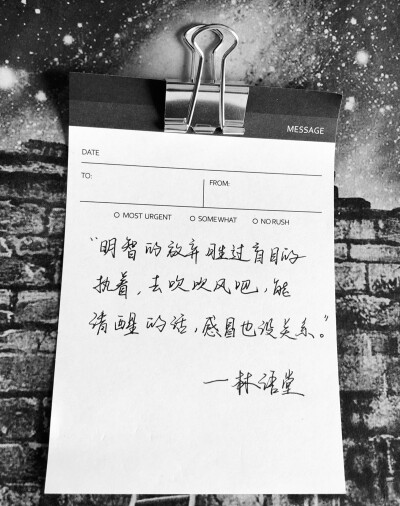 MESSAGE
DATE
TO:
FROM:
MOST URGENT SOMEWHAT NO RUSH
“明智的放弃胜过盲目的
执着，去吹吹风吧，能
清醒的话，感冒也没关系。”
—林语堂